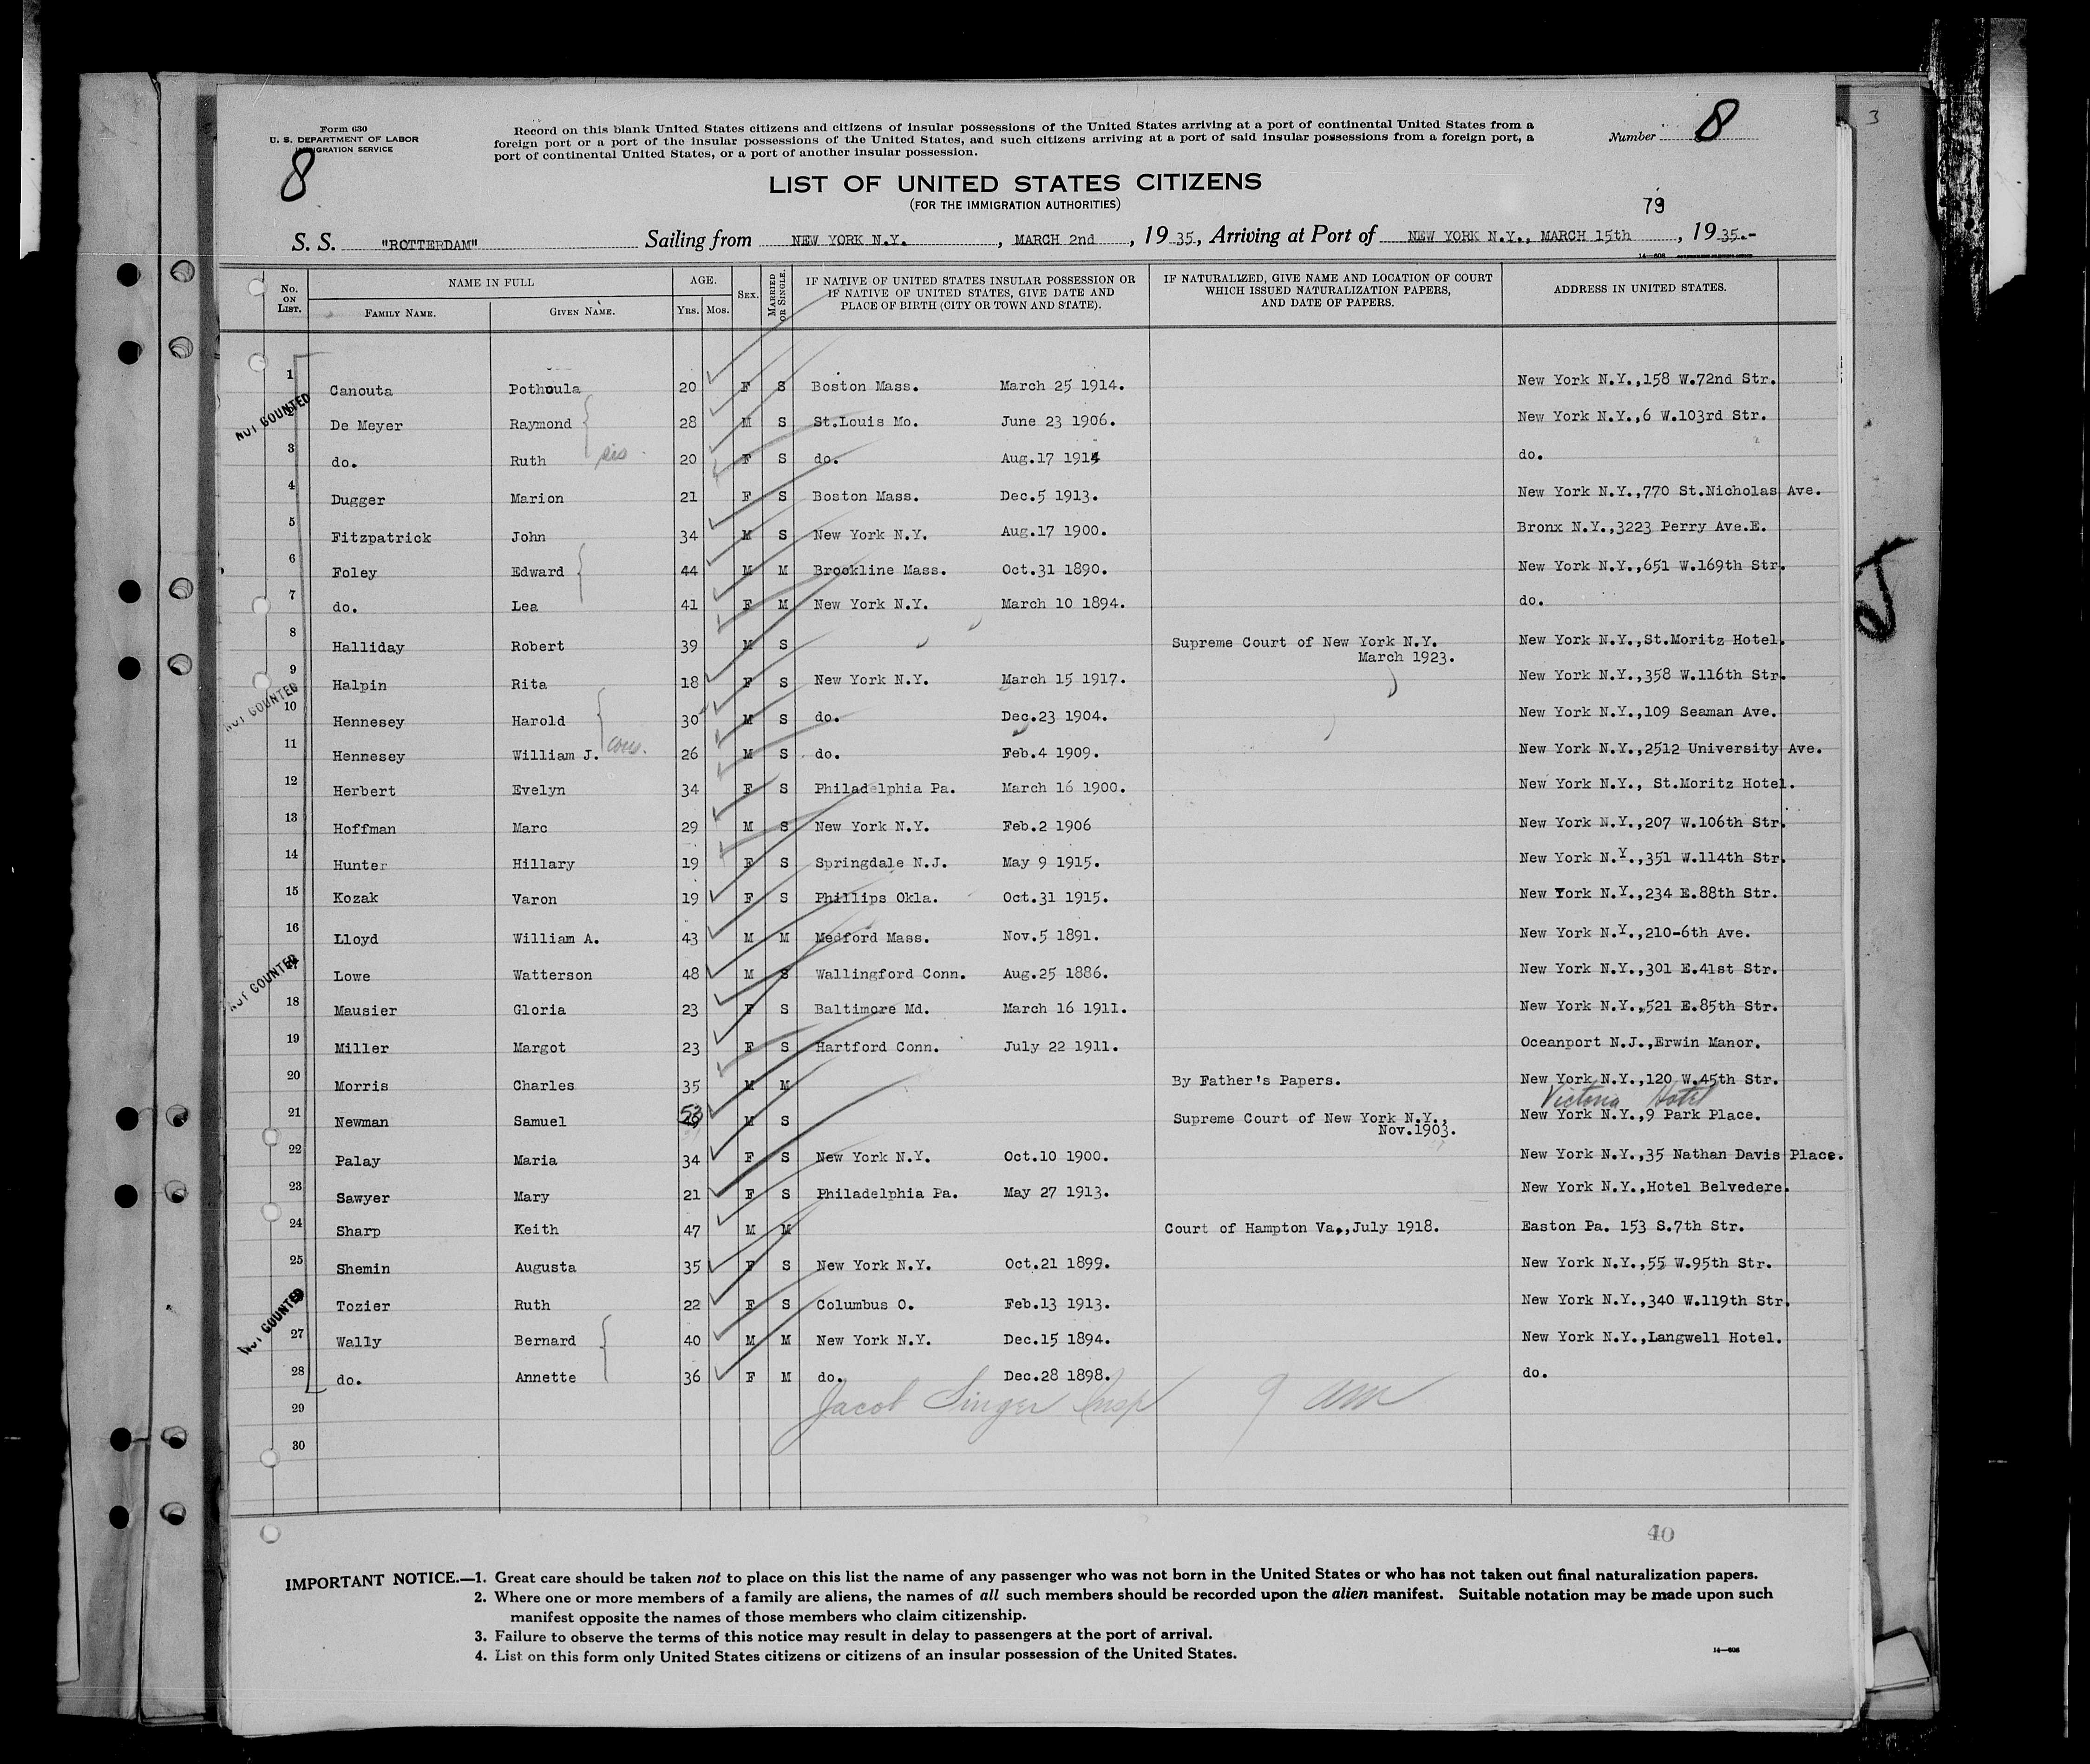 Form 630
U. S. DEPARTMENT OF LABOR
IMMIGRATION SERVICE
8
Record on this blank United States citizens and citizens of insular possessions of the United States arriving at a port of continental United States from a
foreign port or a port of the insular possessions of the United States, and such citizens arriving at a port of said insular possessions from a foreign port, a
port of continental United States, or a port of another insular possession.
Number 8
3
LIST OF UNITED STATES CITIZENS
(FOR THE IMMIGRATION AUTHORITIES)
79
S. S. "ROTTERDAM" Sailing from NEW YORK N.Y. , MARCH 2nd , 19 35, Arriving at Port of NEW YORK N.Y., MARCH 15th , 19 35.-
14—608
No. ON LIST. NAME IN FULL AGE. SEX. MARRIED OR SINGLE. IF NATIVE OF UNITED STATES INSULAR POSSESSION OR IF NATIVE OF UNITED STATES, GIVE DATE AND PLACE OF BIRTH (CITY OR TOWN AND STATE). IF NATURALIZED, GIVE NAME AND LOCATION OF COURT WHICH ISSUED NATURALIZATION PAPERS, AND DATE OF PAPERS. ADDRESS IN UNITED STATES.
FAMILY NAME. GIVEN NAME. YRS. MOS.
1 Canouta Pothoula 20 F S Boston Mass. March 25 1914. New York N.Y.,158 W.72nd Str.
NOT COUNTED
De Meyer Raymond 28 M S St.Louis Mo. June 23 1906. New York N.Y.,6 W.103rd Str.
3 do. Ruth sis 20 F S do. Aug.17 1914 do.
4 Dugger Marion 21 F S Boston Mass. Dec.5 1913. New York N.Y.,770 St.Nicholas Ave.
5 Fitzpatrick John 34 M S New York N.Y. Aug.17 1900. Bronx N.Y.,3223 Perry Ave.E.
6 Foley Edward 44 M M Brookline Mass. Oct.31 1890. New York N.Y.,651 W.169th Str.
7 do. Lea 41 F M New York N.Y. March 10 1894. do.
8 Halliday Robert 39 M S Supreme Court of New York N.Y. New York N.Y.,St.Moritz Hotel.
March 1923.
9 Halpin Rita 18 F S New York N.Y. March 15 1917. New York N.Y.,358 W.116th Str.
NOT COUNTED
10 Hennesey Harold 30 M S do. Dec.23 1904. New York N.Y.,109 Seaman Ave.
11 Hennesey William J. cous. 26 M S do. Feb.4 1909. New York N.Y.,2512 University Ave.
12 Herbert Evelyn 34 F S Philadelphia Pa. March 16 1900. New York N.Y., St.Moritz Hotel.
13 Hoffman Marc 29 M S New York N.Y. Feb.2 1906 New York N.Y.,207 W.106th Str.
14 Hunter Hillary 19 F S Springdale N.J. May 9 1915. New York N.Y.,351 W.114th Str.
15 Kozak Varon 19 F S Phillips Okla. Oct.31 1915. New York N.Y.,234 E.88th Str.
16 Lloyd William A. 43 M M Medford Mass. Nov.5 1891. New York N.Y.,210-6th Ave.
NOT COUNTED
Lowe Watterson 48 M S Wallingford Conn. Aug.25 1886. New York N.Y.,301 E.41st Str.
18 Mausier Gloria 23 F S Baltimore Md. March 16 1911. New York N.Y.,521 E.85th Str.
19 Miller Margot 23 F S Hartford Conn. July 22 1911. Oceanport N.J.,Erwin Manor.
20 Morris Charles 35 M M By Father's Papers. New York N.Y.,120 W.45th Str.
Victoria Hotel
21 Newman Samuel 53 M S Supreme Court of New York N.Y., New York N.Y.,9 Park Place.
Nov.1903.
22 Palay Maria 34 F S New York N.Y. Oct.10 1900. New York N.Y.,35 Nathan Davis Place.
23 Sawyer Mary 21 F S Philadelphia Pa. May 27 1913. New York N.Y.,Hotel Belvedere.
24 Sharp Keith 47 M M Court of Hampton Va.,July 1918. Easton Pa. 153 S.7th Str.
25 Shemin Augusta 35 F S New York N.Y. Oct.21 1899. New York N.Y.,55 W.95th Str.
NOT COUNTED
Tozier Ruth 22 F S Columbus O. Feb.13 1913. New York N.Y.,340 W.119th Str.
27 Wally Bernard 40 M M New York N.Y. Dec.15 1894. New York N.Y.,Langwell Hotel.
28 do. Annette 36 F M do. Dec.28 1898. do.
29 Jacob Singer Insp 9 am
30
40
IMPORTANT NOTICE.—1. Great care should be taken not to place on this list the name of any passenger who was not born in the United States or who has not taken out final naturalization papers.
2. Where one or more members of a family are aliens, the names of all such members should be recorded upon the alien manifest. Suitable notation may be made upon such
manifest opposite the names of those members who claim citizenship.
3. Failure to observe the terms of this notice may result in delay to passengers at the port of arrival.
4. List on this form only United States citizens or citizens of an insular possession of the United States.
14—608